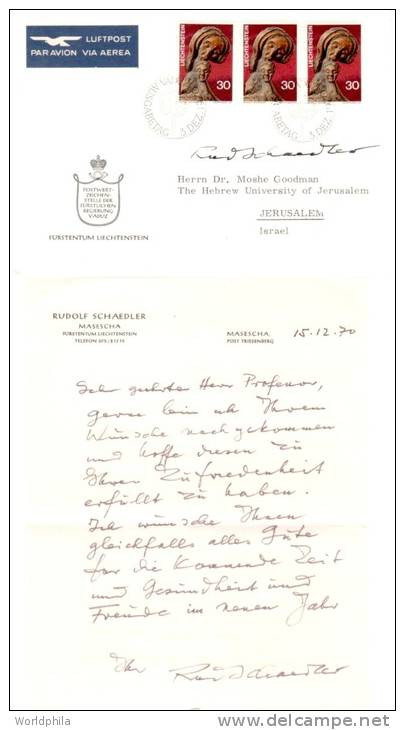 LUFTPOST
PAR AVION VIA AEREA
LIECHTENSTEIN LIECHTENSTEIN LIECHTENSTEIN
30 30 30
AUSGABETAG 3 DEZ.
Rud Schaedler
POSTWERT-
ZEICHEN-
STELLE DER
FÜRSTLICHEN
REGIERUNG
VADUZ
FÜRSTENTUM LIECHTENSTEIN
Herrn Dr. Moshe Goodman
The Hebrew University of Jerusalem
JERUSALEM
Israel
RUDOLF SCHAEDLER
MASESCHA
FÜRSTENTUM LIECHTENSTEIN
MASESCHA
POST TRIESENBERG
15.12.70
Sehr geehrter Herr Professor,
gerne bin ich Ihrem
Wunsche nachgekommen
und hoffe diesen zu
Ihrer Zufriedenheit
erfüllt zu haben.
Ich wünsche Ihnen
gleichfalls alles Gute
für die kommende Zeit
und Gesundheit und
Freude im neuen Jahr
Ihr Rud Schaedler
Worldphila
www.delcampe.net